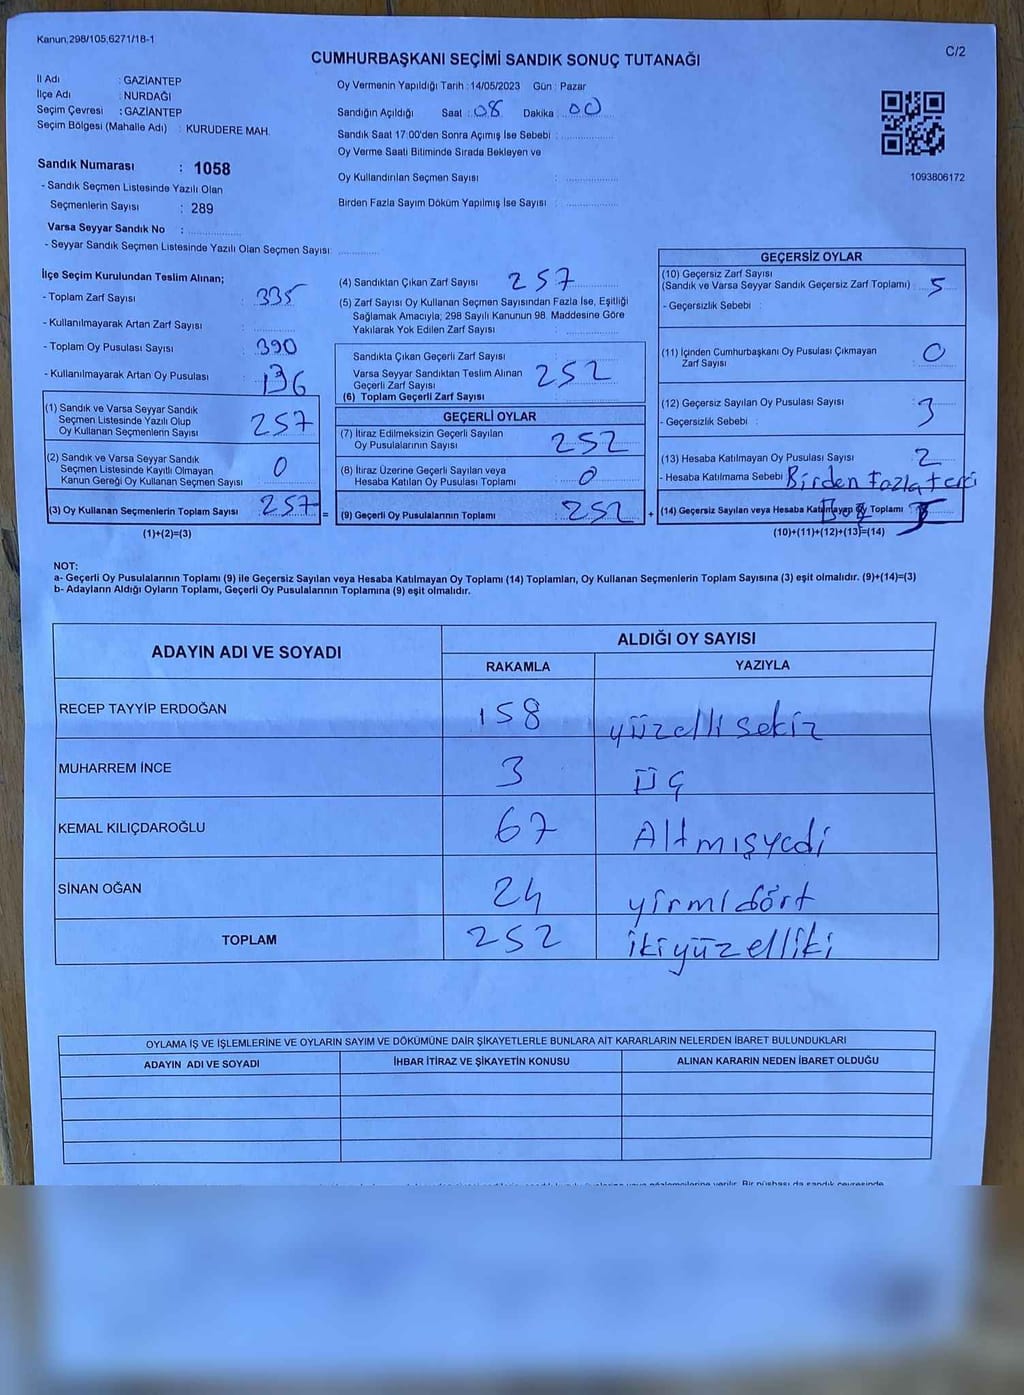 Kanun,298/105,6271/18-1
C/2
CUMHURBAŞKANI SEÇİMİ SANDIK SONUÇ TUTANAĞI
İl Adı : GAZİANTEP
İlçe Adı : NURDAĞI
Seçim Çevresi : GAZİANTEP
Seçim Bölgesi (Mahalle Adı) : KURUDERE MAH.
Sandık Numarası : 1058
- Sandık Seçmen Listesinde Yazılı Olan
Seçmenlerin Sayısı : 289
Varsa Seyyar Sandık No :
- Seyyar Sandık Seçmen Listesinde Yazılı Olan Seçmen Sayısı:
Oy Vermenin Yapıldığı Tarih : 14/05/2023 Gün : Pazar
Sandığın Açıldığı Saat : 08 Dakika : 00
Sandık Saat 17:00'den Sonra Açımış İse Sebebi :
Oy Verme Saati Bitiminde Sırada Bekleyen ve
Oy Kullandırılan Seçmen Sayısı :
Birden Fazla Sayım Döküm Yapılmış İse Sayısı :
1093806172
İlçe Seçim Kurulundan Teslim Alınan;
- Toplam Zarf Sayısı : 335
- Kullanılmayarak Artan Zarf Sayısı :
- Toplam Oy Pusulası Sayısı : 390
- Kullanılmayarak Artan Oy Pusulası : 136
(1) Sandık ve Varsa Seyyar Sandık
Seçmen Listesinde Yazılı Olup
Oy Kullanan Seçmenlerin Sayısı : 257
(2) Sandık ve Varsa Seyyar Sandık
Seçmen Listesinde Kayıtlı Olmayan
Kanun Gereği Oy Kullanan Seçmen Sayısı : 0
(3) Oy Kullanan Seçmenlerin Toplam Sayısı : 257 =
(1)+(2)=(3)
(4) Sandıktan Çıkan Zarf Sayısı : 257
(5) Zarf Sayısı Oy Kullanan Seçmen Sayısından Fazla İse, Eşitliği
Sağlamak Amacıyla; 298 Sayılı Kanunun 98. Maddesine Göre
Yakılarak Yok Edilen Zarf Sayısı :
Sandıkta Çıkan Geçerli Zarf Sayısı
Varsa Seyyar Sandıktan Teslim Alınan
Geçerli Zarf Sayısı
(6) Toplam Geçerli Zarf Sayısı : 252
GEÇERLİ OYLAR
(7) İtiraz Edilmeksizin Geçerli Sayılan
Oy Pusulalarının Sayısı : 252
(8) İtiraz Üzerine Geçerli Sayılan veya
Hesaba Katılan Oy Pusulası Toplamı : 0
(9) Geçerli Oy Pusulalarının Toplamı : 252 +
GEÇERSİZ OYLAR
(10) Geçersiz Zarf Sayısı
(Sandık ve Varsa Seyyar Sandık Geçersiz Zarf Toplamı) : 5
- Geçersizlik Sebebi :
(11) İçinden Cumhurbaşkanı Oy Pusulası Çıkmayan
Zarf Sayısı : 0
(12) Geçersiz Sayılan Oy Pusulası Sayısı : 3
- Geçersizlik Sebebi :
(13) Hesaba Katılmayan Oy Pusulası Sayısı : 2
- Hesaba Katılmama Sebebi : Birden Fazla
(14) Geçersiz Sayılan veya Hesaba Katılmayan Oy Toplamı
(10)+(11)+(12)+(13)=(14)
NOT:
a- Geçerli Oy Pusulalarının Toplamı (9) ile Geçersiz Sayılan veya Hesaba Katılmayan Oy Toplamı (14) Toplamları, Oy Kullanan Seçmenlerin Toplam Sayısına (3) eşit olmalıdır. (9)+(14)=(3)
b- Adayların Aldığı Oyların Toplamı, Geçerli Oy Pusulalarının Toplamına (9) eşit olmalıdır.
ADAYIN ADI VE SOYADI
ALDIĞI OY SAYISI
RAKAMLA YAZIYLA
RECEP TAYYİP ERDOĞAN 158 yüzelli sekiz
MUHARREM İNCE 3 üç
KEMAL KILIÇDAROĞLU 67 Altmışyedi
SİNAN OĞAN 24 yirmidört
TOPLAM 252 ikiyüzelliki
OYLAMA İŞ VE İŞLEMLERİNE VE OYLARIN SAYIM VE DÖKÜMÜNE DAİR ŞİKAYETLERLE BUNLARA AİT KARARLARIN NELERDEN İBARET BULUNDUKLARI
ADAYIN ADI VE SOYADI İHBAR İTİRAZ VE ŞİKAYETİN KONUSU ALINAN KARARIN NEDEN İBARET OLDUĞU